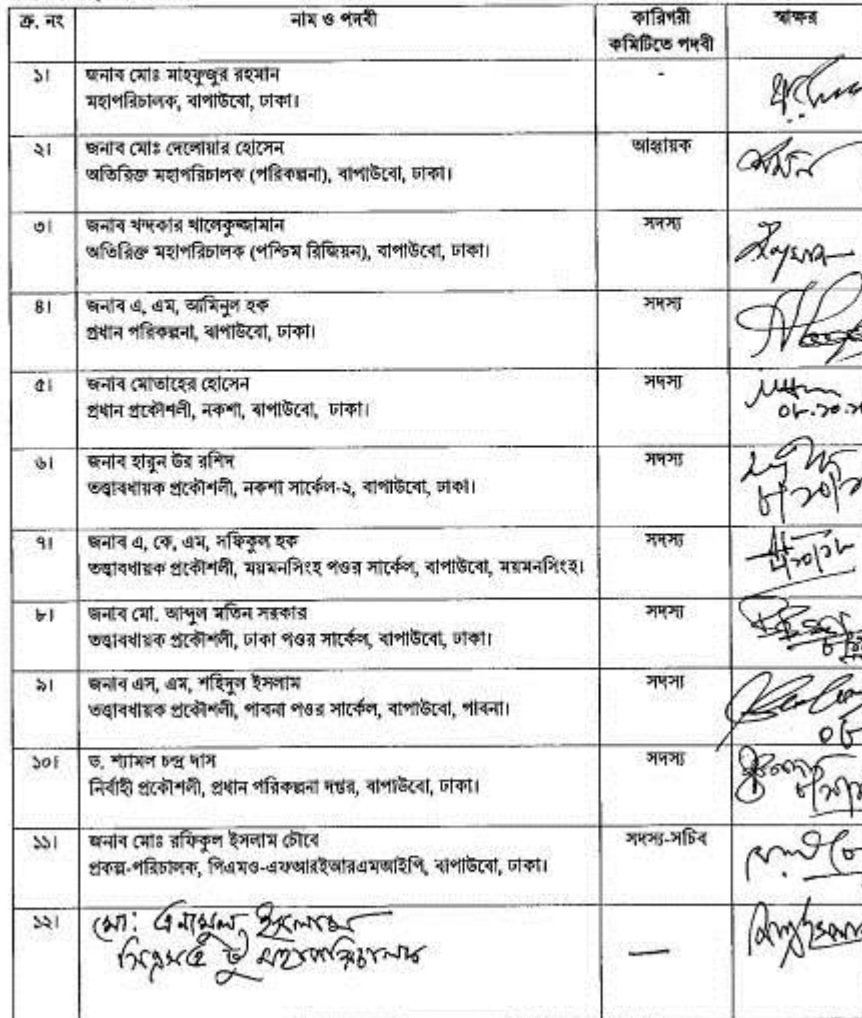 ক্র. নং নাম ও পদবী কারিগরী কমিটিতে পদবী স্বাক্ষর
১। জনাব মোঃ মাহফুজুর রহমান -
মহাপরিচালক, বাপাউবো, ঢাকা।
২। জনাব মোঃ দেলোয়ার হোসেন আহ্বায়ক
অতিরিক্ত মহাপরিচালক (পরিকল্পনা), বাপাউবো, ঢাকা।
৩। জনাব খন্দকার খালেকুজ্জামান সদস্য
অতিরিক্ত মহাপরিচালক (পশ্চিম রিজিয়ন), বাপাউবো, ঢাকা।
৪। জনাব এ, এম, আমিনুল হক সদস্য
প্রধান পরিকল্পনা, বাপাউবো, ঢাকা।
৫। জনাব মোতাহের হোসেন সদস্য
প্রধান প্রকৌশলী, নকশা, বাপাউবো, ঢাকা।
৬। জনাব হারুন উর রশিদ সদস্য
তত্ত্বাবধায়ক প্রকৌশলী, নকশা সার্কেল-২, বাপাউবো, ঢাকা।
৭। জনাব এ, কে, এম, সফিকুল হক সদস্য
তত্ত্বাবধায়ক প্রকৌশলী, ময়মনসিংহ পওর সার্কেল, বাপাউবো, ময়মনসিংহ।
৮। জনাব মো. আব্দুল মতিন সরকার সদস্য
তত্ত্বাবধায়ক প্রকৌশলী, ঢাকা পওর সার্কেল, বাপাউবো, ঢাকা।
৯। জনাব এস, এম, শহিদুল ইসলাম সদস্য
তত্ত্বাবধায়ক প্রকৌশলী, পাবনা পওর সার্কেল, বাপাউবো, পাবনা।
১০। ড. শ্যামল চন্দ্র দাস সদস্য
নির্বাহী প্রকৌশলী, প্রধান পরিকল্পনা দপ্তর, বাপাউবো, ঢাকা।
১১। জনাব মোঃ রফিকুল ইসলাম চৌবে সদস্য-সচিব
প্রকল্প-পরিচালক, পিএমও-এফআরইআরএমআইপি, বাপাউবো, ঢাকা।
১২। মো: এনামুল ইসলাম —
টু মহাপরিচালক